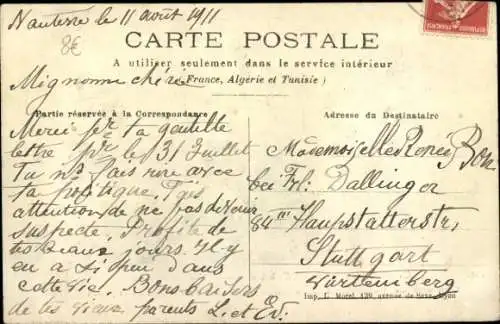 Nanterre le 11 août 1911
8€
CARTE POSTALE
A utiliser seulement dans le service intérieur
(France, Algérie et Tunisie)
Mignonne chérie
Partie réservée à la Correspondance
Adresse du Destinataire
Merci pr ta gentille
lettre pr le 31 Juillet
Tu ns fais rire avec
ta politique, Fais
attention de ne pas devenir
suspecte. Profite de
tes beaux jours il y
en a si peu dans
cette vie. Bons baisers
de tes vieux parents L. et Ed.
Mademoiselle Renée
bei Frl. Dallinger
84 III Hauptstätterstr,
Stuttgart
Württemberg
Imp. L. Morel, 139, avenue de Saxe, Lyon